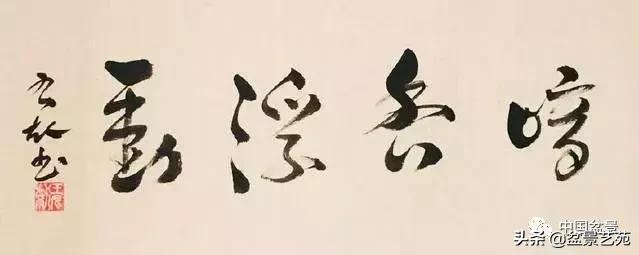 暗香浮動
书
中国盆景
头条 @盆景艺苑